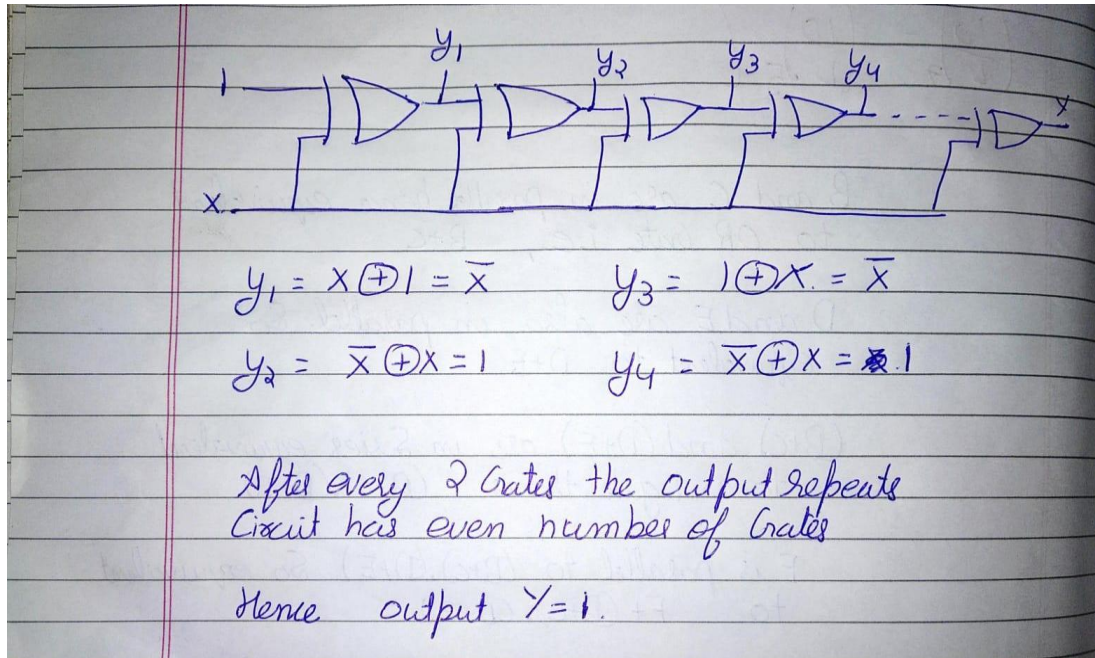 y1 y2 y3 y4
1
Y
X
y1 = X ⊕ 1 = X̅ y3 = 1 ⊕ X. = X̅
y2 = X̅ ⊕ X = 1 y4 = X̅ ⊕ X = 1
After every 2 Gates the output repeats
Circuit has even number of Gates
Hence output Y = 1.